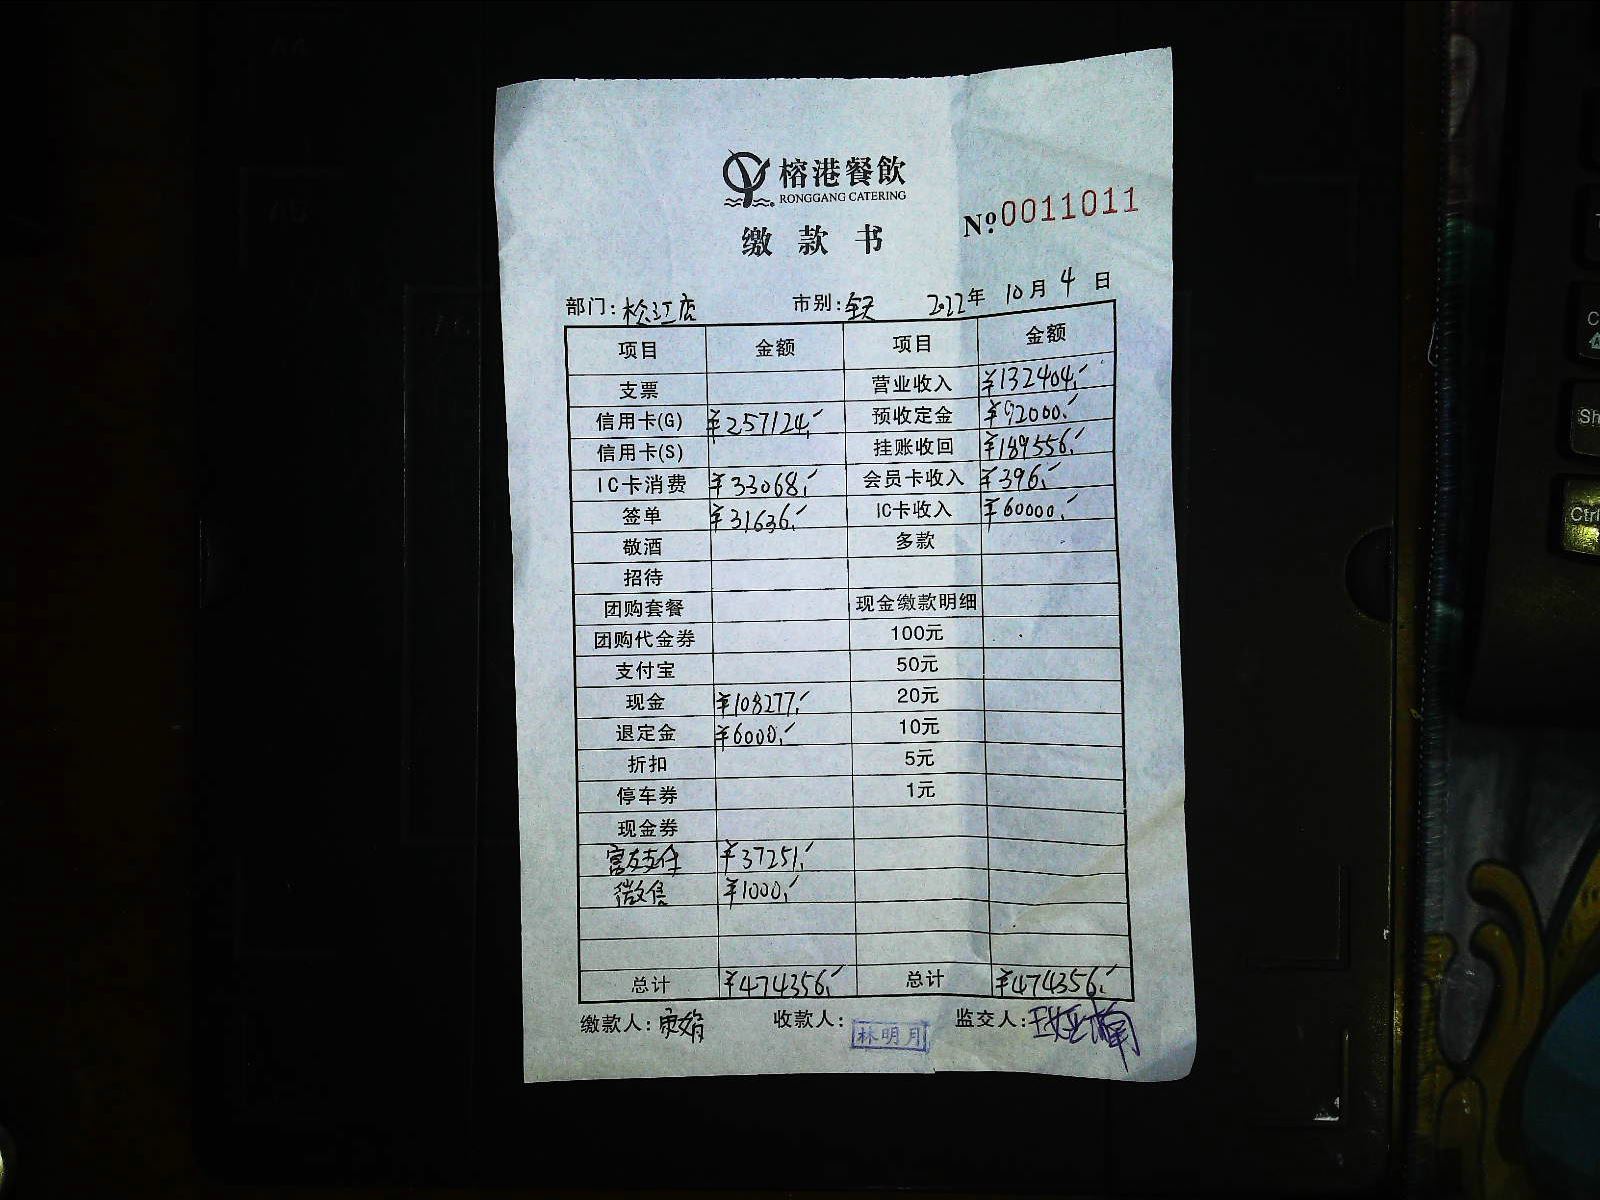 榕港餐飲
RONGGANG CATERING
№ 0011011
缴款书
部门: 松江店 市别: 全天 2022年 10月 4日
项目 金额 项目 金额
支票 营业收入 ¥132404.-
信用卡(G) ¥257124.- 预收定金 ¥92000.-
信用卡(S) 挂账收回 ¥189556.-
IC卡消费 ¥33068.- 会员卡收入 ¥396.-
签单 ¥31636.- IC卡收入 ¥60000.-
敬酒 多款
招待
团购套餐 现金缴款明细
团购代金券 100元
支付宝 50元
现金 ¥108277.- 20元
退定金 ¥6000.- 10元
折扣 5元
停车券 1元
现金券
富友支付 ¥37251.-
微信 ¥1000.-
总计 ¥474356.- 总计 ¥474356.-
缴款人: 收款人: 林明月 监交人: